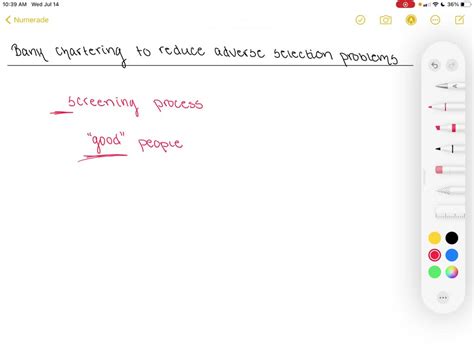 10:39 AM Wed Jul 14
36%
Numerade
Bank chartering to reduce adverse selection problems
screening process
"good" people